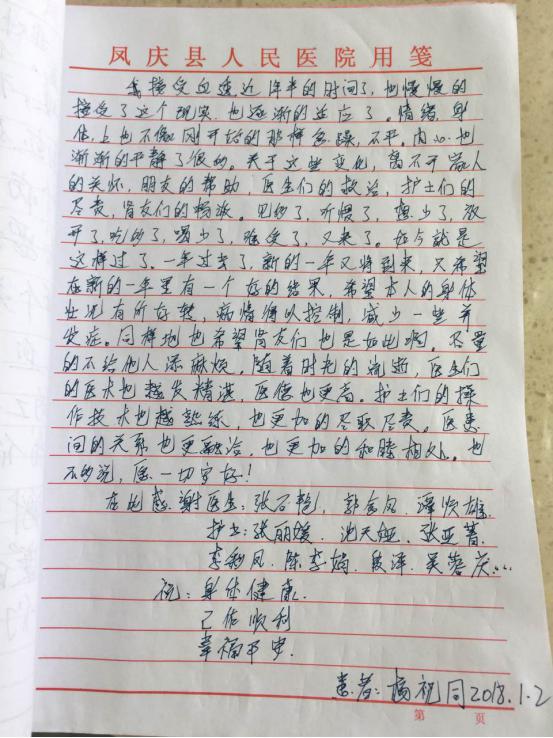 凤庆县人民医院用笺
接受血透近1年半的时间了,也慢慢的
接受了这个现实,也逐渐的适应了。情绪,身
体上也不像刚开始的那样急躁,不平。内心也
渐渐的平静了很多。关于这些变化,离不开家人
的关怀,朋友的帮助,医生们的救治,护士们的
尽责,肾友们的畅谈。见多了,听惯了,想少了,放
开了,吃的了,喝少了,难受了,又来了。如今就是
这样过了。一年过去了,新的一年又将到来,只希望
在新的一年里有一个好的结果,希望本人的身体
状况有所好转,病情得以控制,减少一些并
发症。同样地也希望肾友们也是如此啊。尽量
的不给他人添麻烦。随着时光的流逝,医生们
的医术也越发精湛,医德也更高。护士们的操
作技术也越熟练,也更加的尽职尽责。医患
间的关系也更融洽,也更加的和睦相处。也
不多说,愿一切安好!
在此感谢医生:张石艳,郭金凤,谭顺雄
护士:张丽媛,沈天娅,张亚菁
李彩凤,陈李娟,段泽,吴蓉庆...
祝:身体健康
工作顺利
幸福平安.
患者:杨祝同2018.1.2
第 页